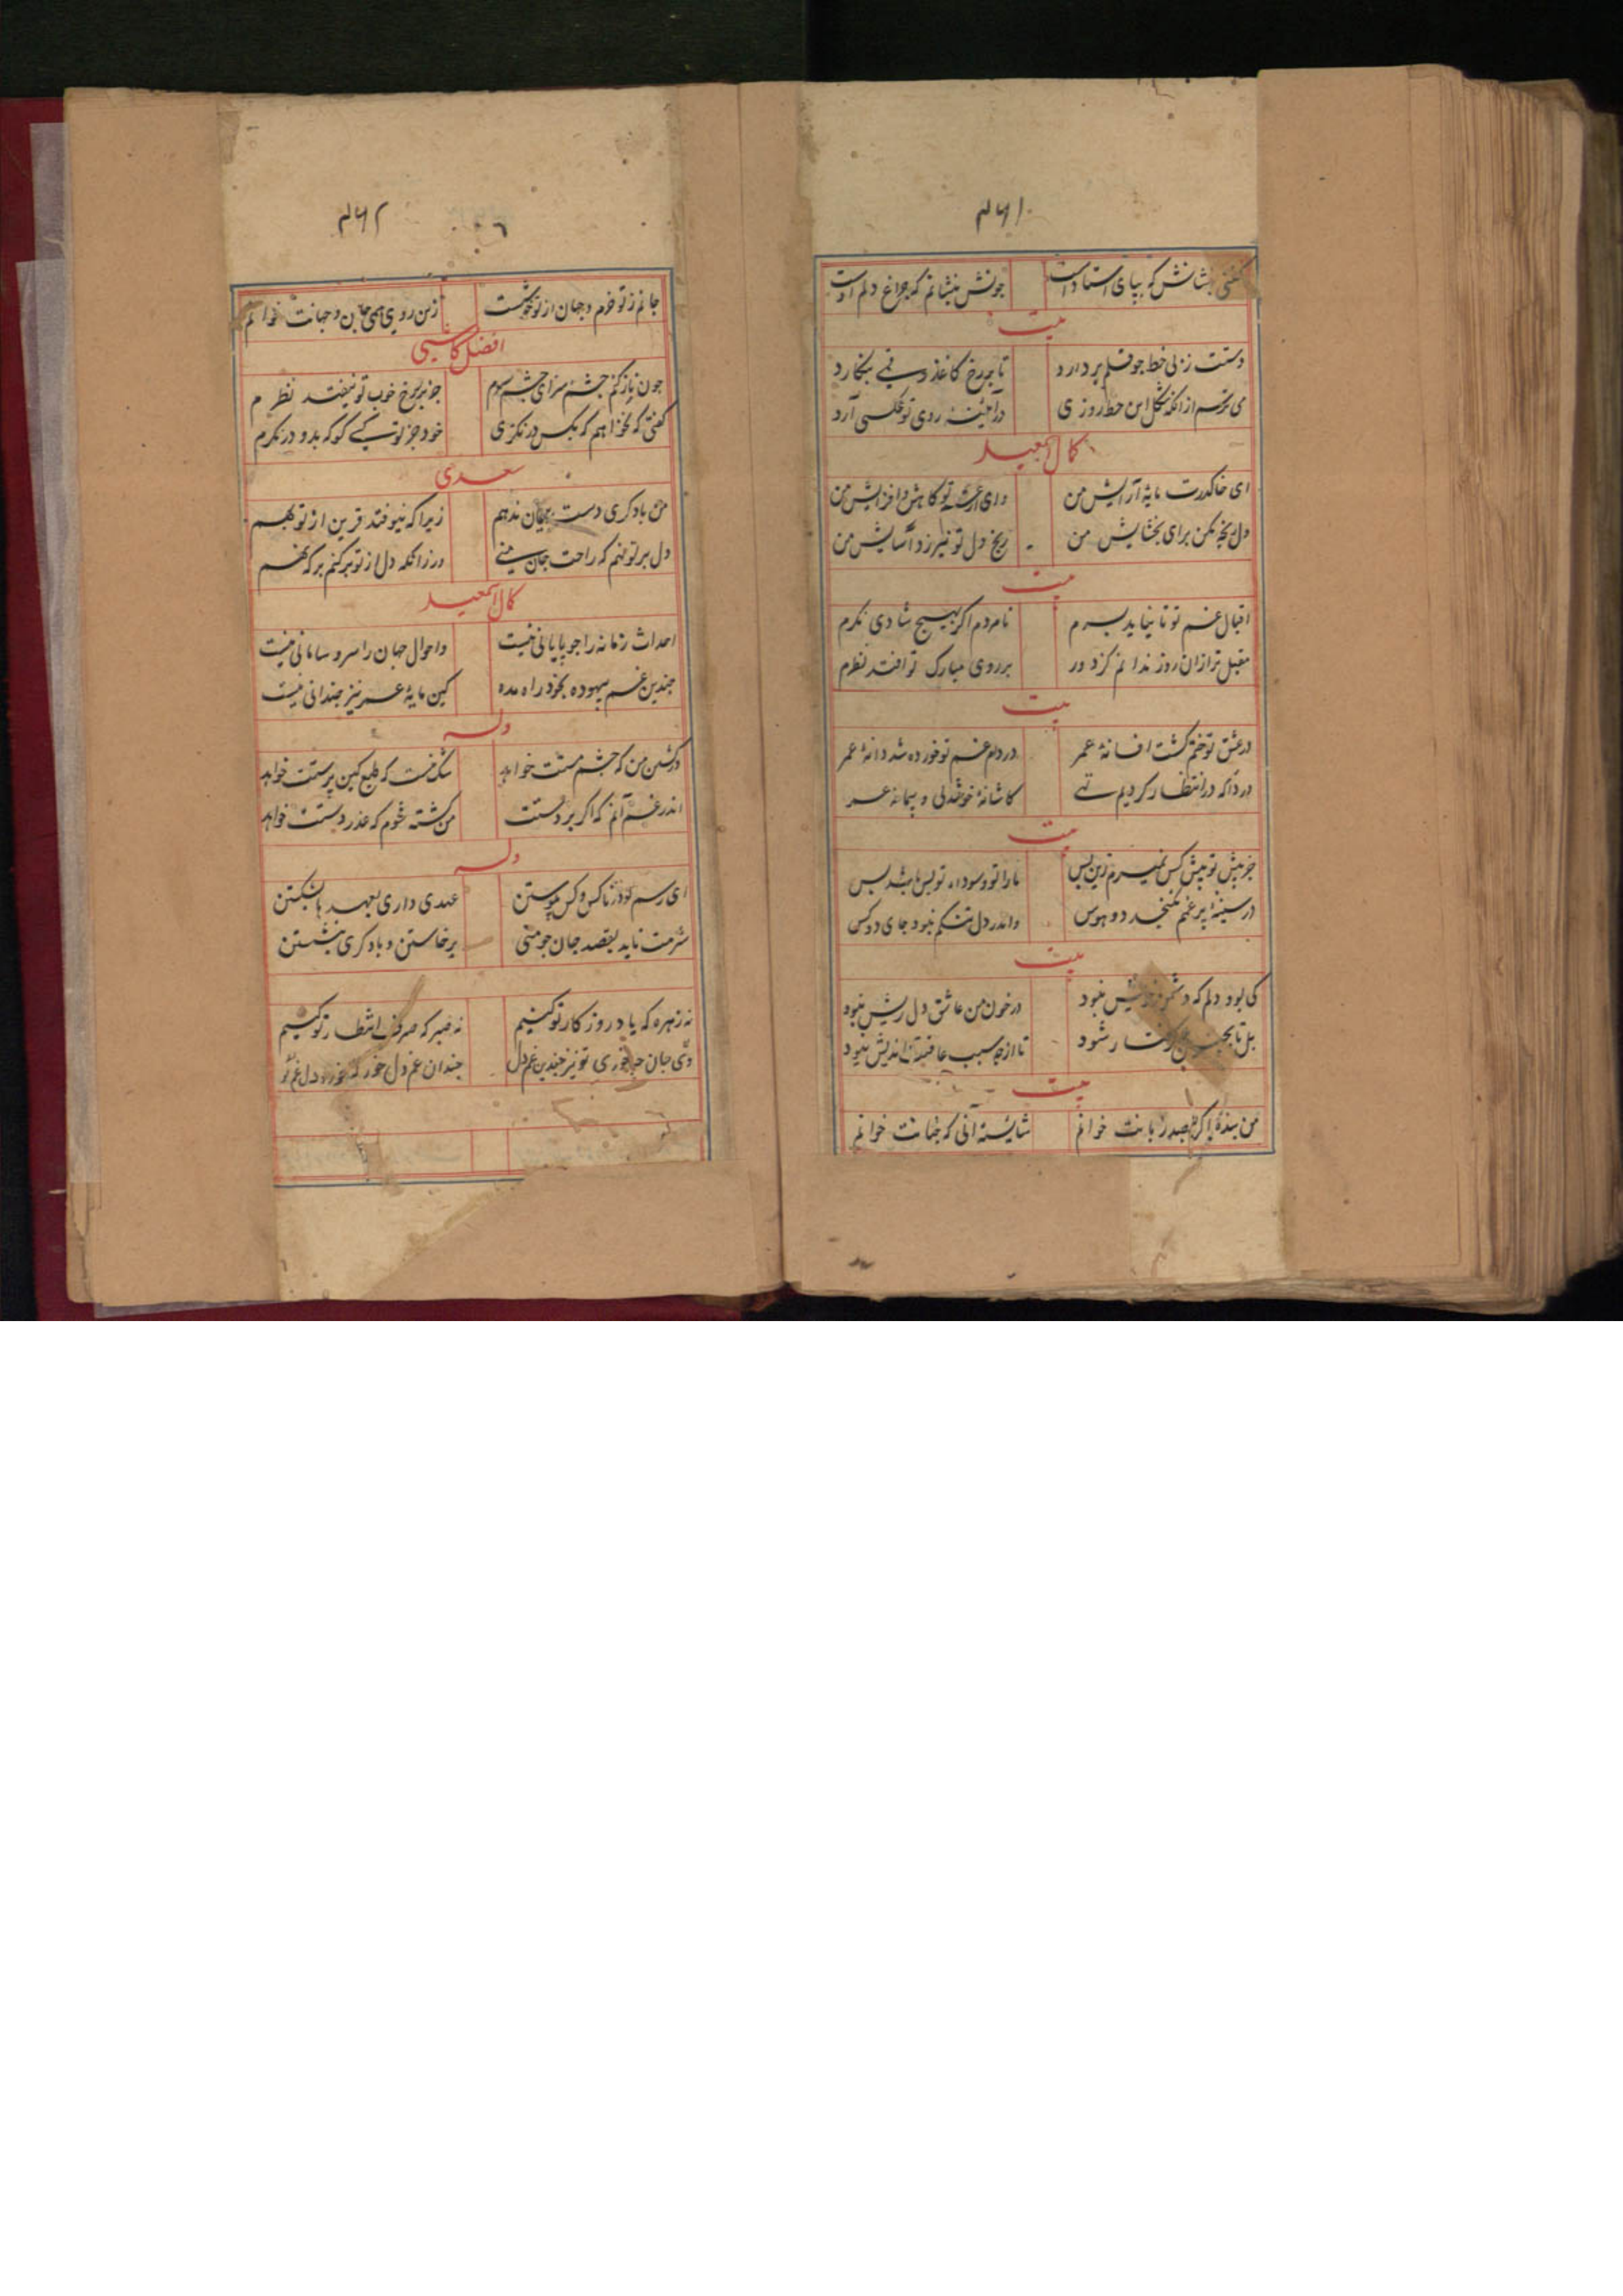 ۴۶۱
گفتی بنشانش که بپای استادست جونش بنشانم که چراغ دلم اوست
بیت
دستت زنی خط جو قلم بردارد تا بر رخ کاغذ رقمی بنگارد
می ترسم از انکه شکل این خط روزی در آینه روی تو عکسی آرد
کمال اسمعیل
ای خاک درت مایهٔ آرایش من وای تو کاهش و افزایش من
دل رنجه مکن برای بخشایش من رنج دل تو نیرزد آسایش من
بیت
اقبال غم تو تا نیاید بسرم نامردم اگر بهیچ شادی نگرم
مقبل تر ازان روز ندانم کز دور بر روی مبارک تو افتد نظرم
بیت
در عشق تو ختم گشت افسانهٔ عمر در دام غم تو خورده شد دانهٔ عمر
دردا که در انتظار کردیم تهی کاشانهٔ خوشدلی و پیمانهٔ عمر
بیت
جز پیش تو پیش کس نمیرم زین پس ما را تو و سوداء تو بس باشد بس
در سینهٔ پر غمم نگنجد دو هوس واندر دل تنگم نبود جای دو کس
بیت
کی بود دلم که دشمن خویش نبود در خون من عاشق دل ریش نبود
بل تا گرفتار شود تا از چه سبب عاقبت اندیش نبود
بیت
من بندهٔ اگر بصد زبانت خوانم شایستهٔ آنی که جهانت خوانم
۴۶۲
جانم ز تو خرم و جهان از تو خوشست زین روی همی جان و جهانت خوانم
افضل کاشی
جون باز کنم جشم سزای جشم جز بر رخ خوب تو نیفتد نظرم
گفتی که نخواهم که بکس در نگری خود جز تو کسی کو که بدو در نگرم
سعدی
من با دگری دست به پیمان ندهم زیرا که نیوفتد قرین از تو بهم
دل بر تو نهم که راحت جان منی ور زانکه دل از تو بر کنم بر که نهم
کمال اسمعیل
احداث زمانه را جو پایانی نیست واحوال جهان را سر و سامانی نیست
جندین غم بیهوده بخود راه مده کین مایهٔ عمر نیز جندانی نیست
وله
در کشتن من که جشم مستت خواهد شک نیست که طبع کین پرستت خواهد
اندر غم آنم که اگر بر دستت من کشته شوم که عذر دستت خواهد
وله
ای رسم تو از ناکس و کس پیوستن عهدی داری بعهدها بشکستن
شرمت ناید بقصد جان جو منی برخاستن و با دگری بنشستن
نه زهره که یاد روزگار تو کنیم نه صبر که صرف انتظار تو کنیم
جندین غم دل جندان غم دل خور که